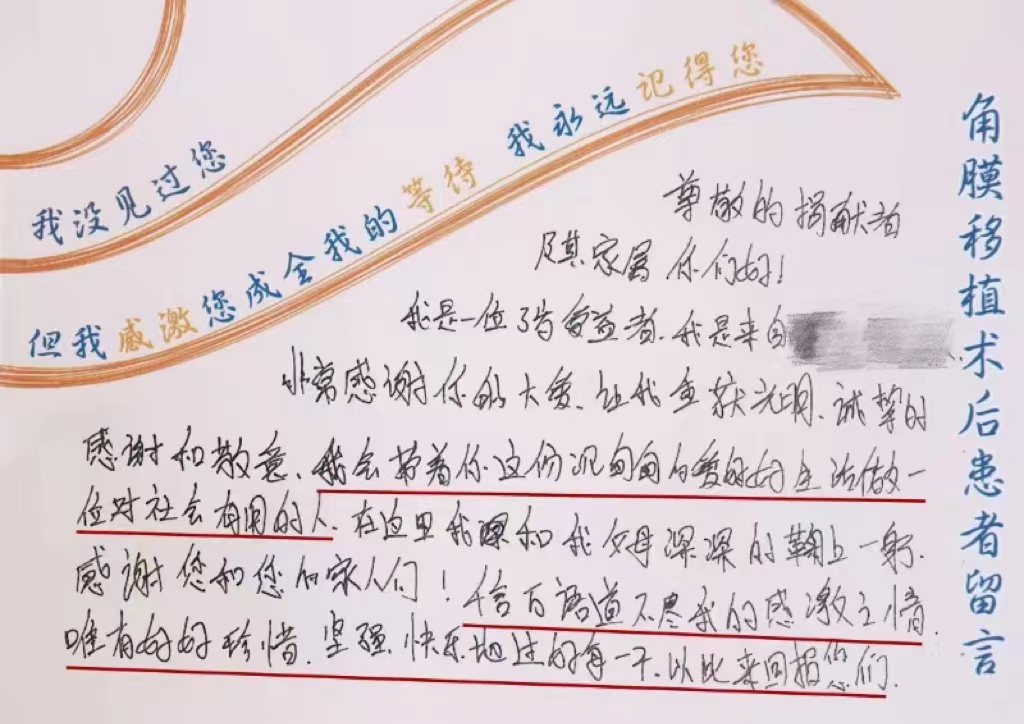 我没见过您
但我感激您成全我的等待 我永远记得您
角膜移植术后患者留言
尊敬的捐献者
及其家属 你们好!
我是一位 受益者.我是来自
非常感谢你的大爱、让我重获光明、诚挚的
感谢和敬意、我会带着你这份沉甸甸的爱好好生活做一
位对社会有用的人、在这里我和我父母深深的鞠上一躬.
感谢您和您的家人们!信百语道不尽我的感激之情.
唯有好好珍惜.坚强.快乐地过好每一天.以此来回报您们.